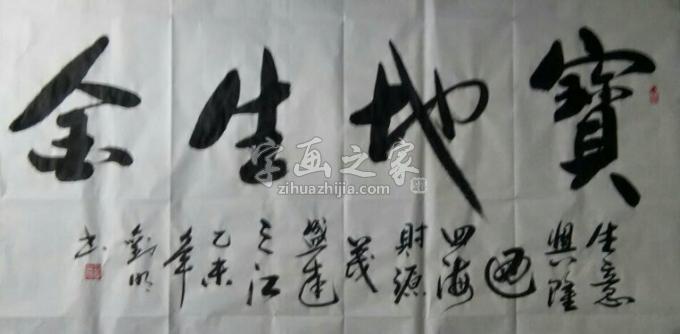 寶地生金
生意
興隆
通
四海
財源
茂
盛達
三江
乙未
年
劉明
书
字画之家
zihuazhijia.com